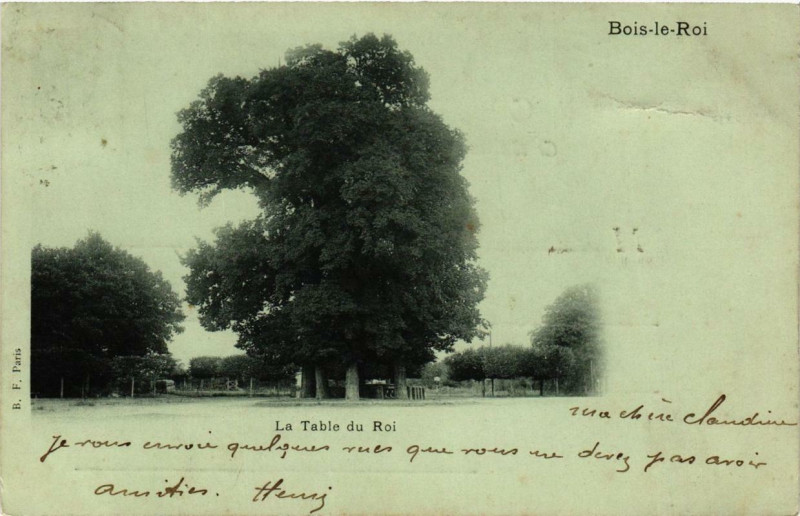 Bois-le-Roi
B. F. Paris
La Table du Roi
ma chère claudine
Je vous envoie quelques vues que vous ne devez pas avoir
amitiés. Henry